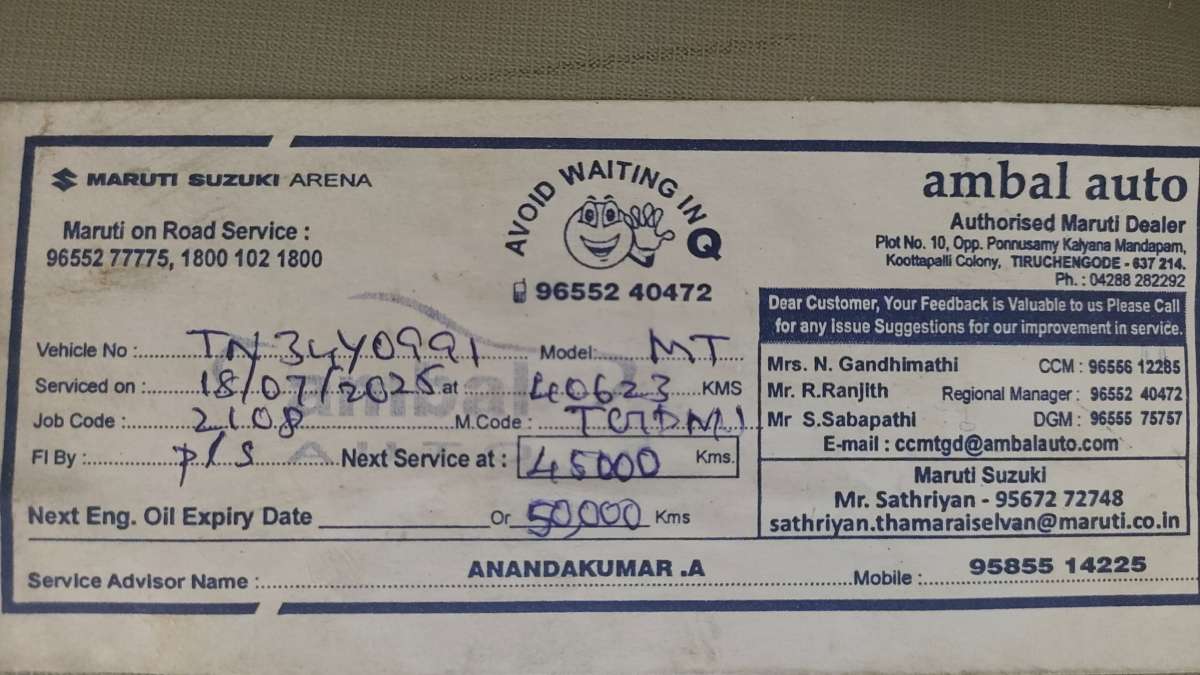 MARUTI SUZUKI ARENA
Maruti on Road Service :
96552 77775, 1800 102 1800
AVOID WAITING IN Q
96552 40472
ambal auto
Authorised Maruti Dealer
Plot No. 10, Opp. Ponnusamy Kalyana Mandapam,
Koottapalli Colony, TIRUCHENGODE - 637 214.
Ph. : 04288 282292
Dear Customer, Your Feedback is Valuable to us Please Call
for any issue Suggestions for our improvement in service.
Mrs. N. Gandhimathi CCM : 96556 12285
Mr. R.Ranjith Regional Manager : 96552 40472
Mr S.Sabapathi DGM : 96555 75757
E-mail : ccmtgd@ambalauto.com
Maruti Suzuki
Mr. Sathriyan - 95672 72748
sathriyan.thamaraiselvan@maruti.co.in
Vehicle No : TN34Y0991 Model: MT
Serviced on : 18/07/2025 at : 40623 KMS
Job Code : 2108 M.Code :
FI By : P/S Next Service at : 45000 Kms.
Next Eng. Oil Expiry Date Or 50,000 Kms
Service Advisor Name : ANANDAKUMAR .A Mobile : 95855 14225